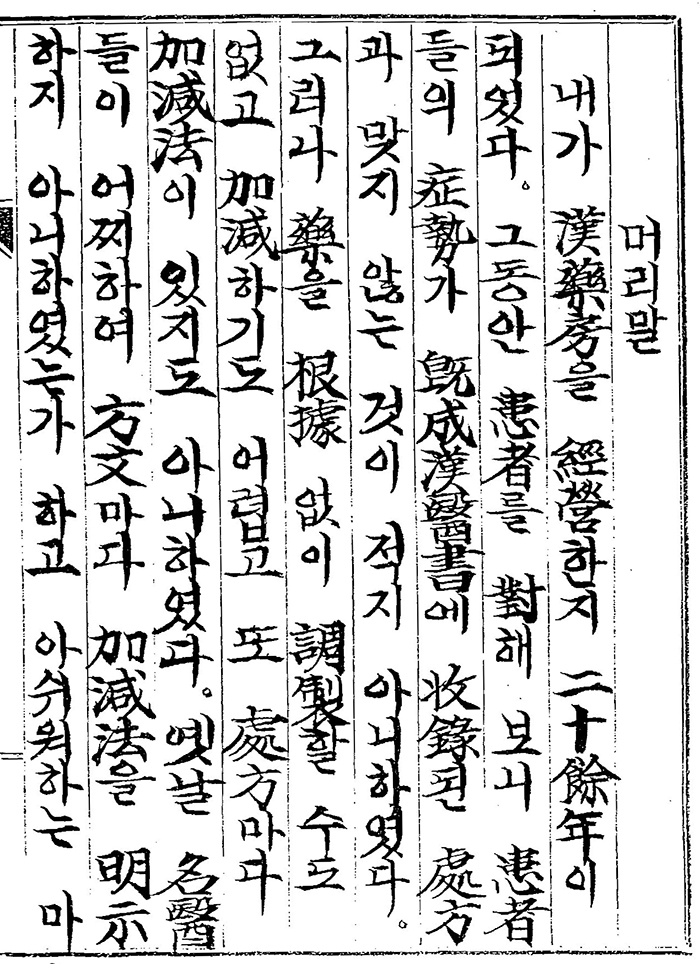 머리말
내가 漢藥房을 經營한지 二十餘年이
되었다. 그동안 患者를 對해 보니 患者
들의 症勢가 旣成漢醫書에 收錄된 處方
과 맞지 않는 것이 적지 아니하였다.
그러나 藥을 根據 없이 調製할 수도
없고 加減하기도 어렵고 또 處方마다
加減法이 있지도 아니하였다. 옛날 名醫
들이 어찌하여 方文마다 加減法을 明示
하지 아니하였는가 하고 아쉬워하는 마